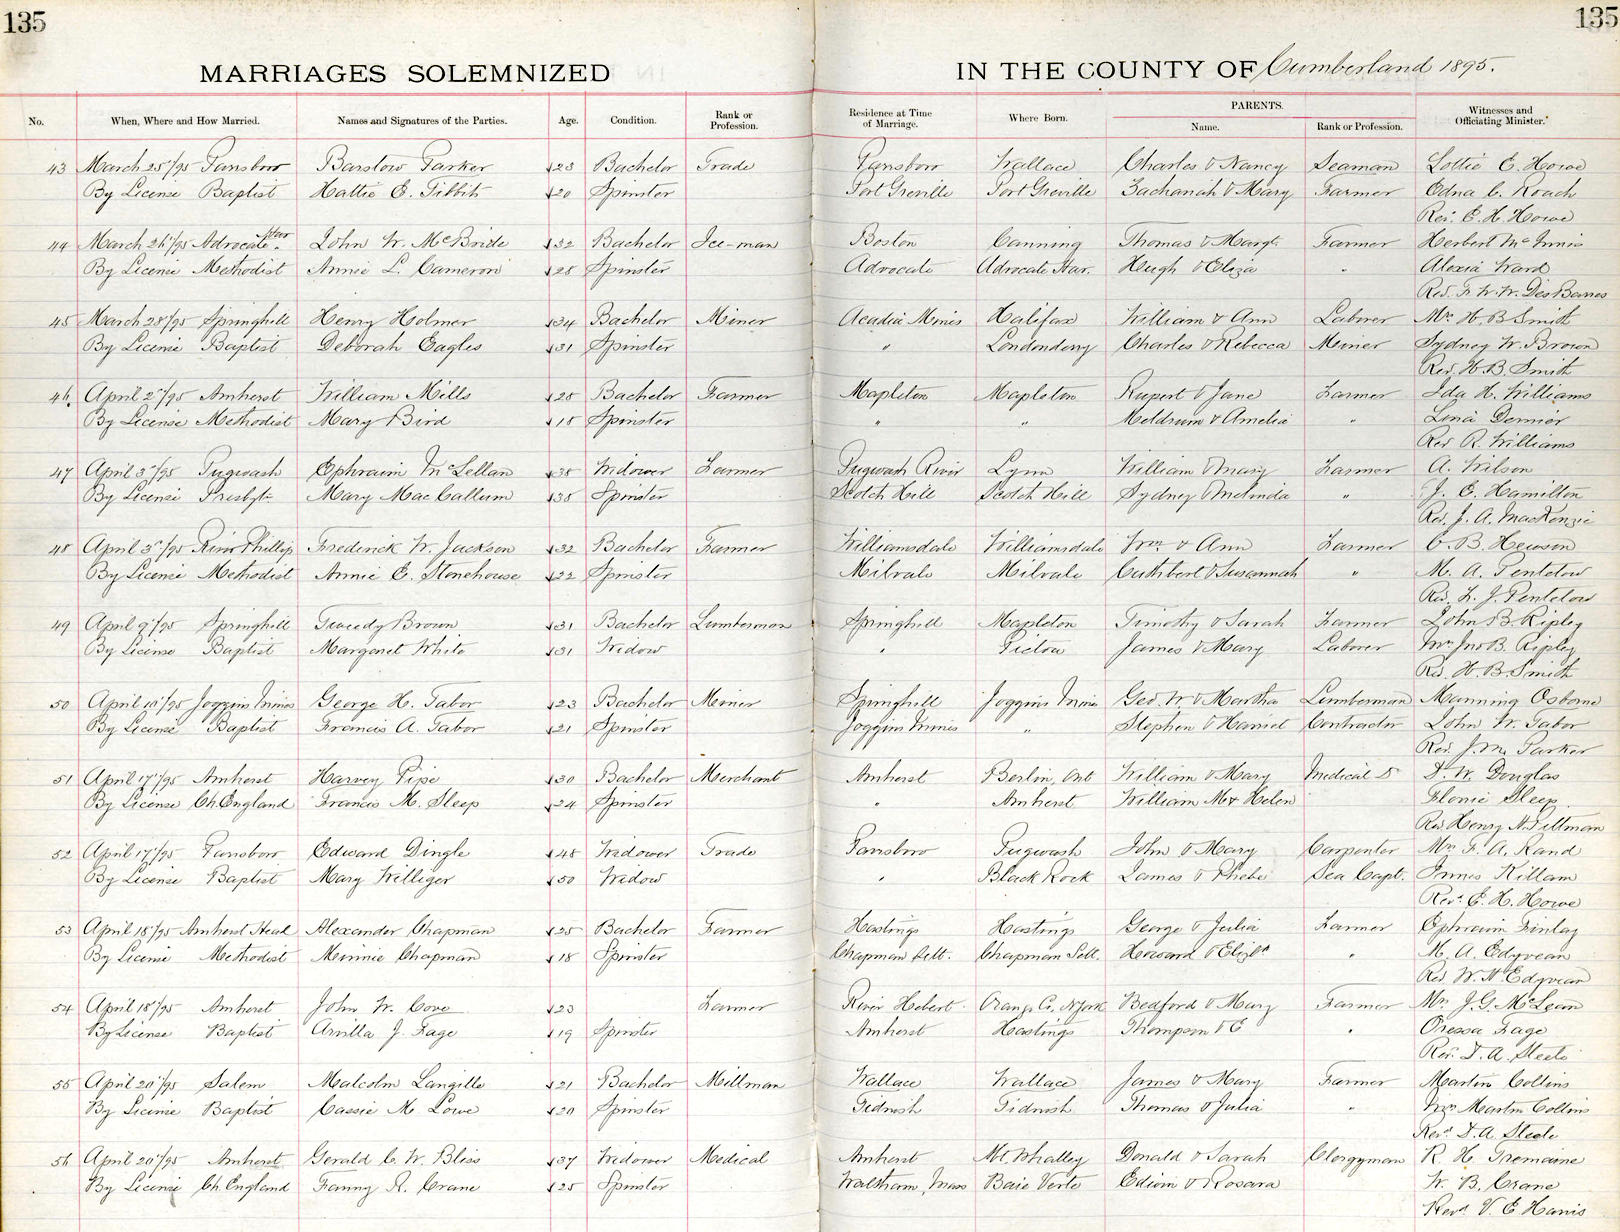 135 135
MARRIAGES SOLEMNIZED IN THE COUNTY OF Cumberland 1895.
No. When, Where and How Married. Names and Signatures of the Parties. Age. Condition. Rank or Profession. Residence at Time of Marriage. Where Born. PARENTS. Name. Rank or Profession. Witnesses and Officiating Minister.
43 March 25"/95 Parrsboro Barstow Parker 23 Bachelor Trade Parrsboro Wallace Charles & Nancy Seaman Lottie E. Howe
By License Baptist Hattie E. Tibbits 20 Spinster Port Greville Port Greville Zachariah & Mary Farmer Edna C. Roach
Rev. E. H. Howe
44 March 26"/95 Advocate Har. John W. McBride 32 Bachelor Ice-man Boston Canning Thomas & Margt. Farmer Herbert McInnis
By License Methodist Annie L. Cameron 28 Spinster Advocate Advocate Har. Hugh & Eliza " Alexia Ward
Rev. F. W. W. DesBarres
45 March 28"/95 Springhill Henry Holmer 34 Bachelor Miner Acadia Mines Halifax William & Ann Laborer Mrs. H. B. Smith
By License Baptist Deborah Eagles 31 Spinster " Londonderry Charles & Rebecca Meiner Sydney W. Brown
Rev. H. B. Smith
46. April 2"/95 Amherst William Mills 28 Bachelor Farmer Mapleton Mapleton Rupert & Jane Farmer Ida H. Williams
By License Methodist Mary Bird 18 Spinster " " Meldrum & Amelia " Lena Dernier
Rev R. Williams
47 April 3"/95 Pugwash Ephraim McLellan 38 Widower Farmer Pugwash River Lynn William & Mary Farmer A. Wilson
By License Presbyt. Mary MacCallum 38 Spinster Scotch Hill Scotch Hill Sydney & Melinda " J. E. Hamilton
Rev. J. A. MacKenzie
48 April 3"/95 River Phillip Frederick W. Jackson 32 Bachelor Farmer Williamsdale Williamsdale Wm. & Ann Farmer C. B. Hewson
By License Methodist Annie E. Stonehouse 22 Spinster Milvale Milvale Cuthbert & Susannah " M. A. Pentelow
Rev. F. J. Pentelow
49 April 9"/95 Springhill Tweedy Brown 31 Bachelor Lumberman Springhill Mapleton Timothy & Sarah Farmer John B. Ripley
By License Baptist Margaret White 31 Widow " Pictou James & Mary Laborer Mrs Jno B. Ripley
Rev. H. B. Smith
50 April 10"/95 Joggins Mines George H. Tabor 23 Bachelor Meiner Springhill Joggins Mines Geo. W. & Martha Lumberman Manning Osborne
By License Baptist Francis A. Tabor 21 Spinster Joggins Mines " Stephen & Harriet Contractor John W. Tabor
Rev. J. M. Parker
51 April 17"/95 Amherst Harvey Pipe 30 Bachelor Merchant Amherst Berlin, Ont William & Mary Medical D. W. Douglas
By License Ch. England Francis M. Sleep 24 Spinster " Amherst William M & Helen Flonie Sleep
Rev Henry
52 April 17"/95 Parrsboro Edward Dingle 48 Widower Trade Parrsboro Pugwash John & Mary Carpenter Mrs. F. A. Rand
By License Baptist Mary Williger 50 Widow " Black Rock James & Phebe Sea Capt. Innes Killam
Rev. E. H. Howe
53 April 18"/95 Amherst Head Alexander Chapman 25 Bachelor Farmer Hastings Hastings George & Julia Farmer Ephraim Finlay
By License Methodist Minnie Chapman 18 Spinster Chapman Sett. Chapman Sett. Howard & Elizbth " M. A. Edyvean
Rev W. Edyvean
54 April 18"/95 Amherst John W. Cove 23 Farmer River Hebert Orange Co, N York Bedford & Mary Farmer Mrs J. G. McLean
By License Baptist Arvilla J. Fage 19 Spinster Amherst Hastings Thompson & E " Oressa Fage
Rev. D. A. Steele
55 April 20"/95 Salem Malcolm Langille 21 Bachelor Millman Wallace Wallace James & Mary Farmer Martin Collins
By License Baptist Cassie M. Lowe 20 Spinster Tidnish Tidnish Thomas & Julia " Mrs Martin Collins
Revd D. A. Steele
56 April 20"/95 Amherst Gerald C. W. Bliss 37 Widower Medical Amherst Mt Whatley Donald & Sarah Clergyman R. H. Tremaine
By License Ch. England Fanny R. Crane 25 Spinster Waltham, Mass Baie Verte Edwin & Rosara W. B. Crane
Revd V. E. Harris